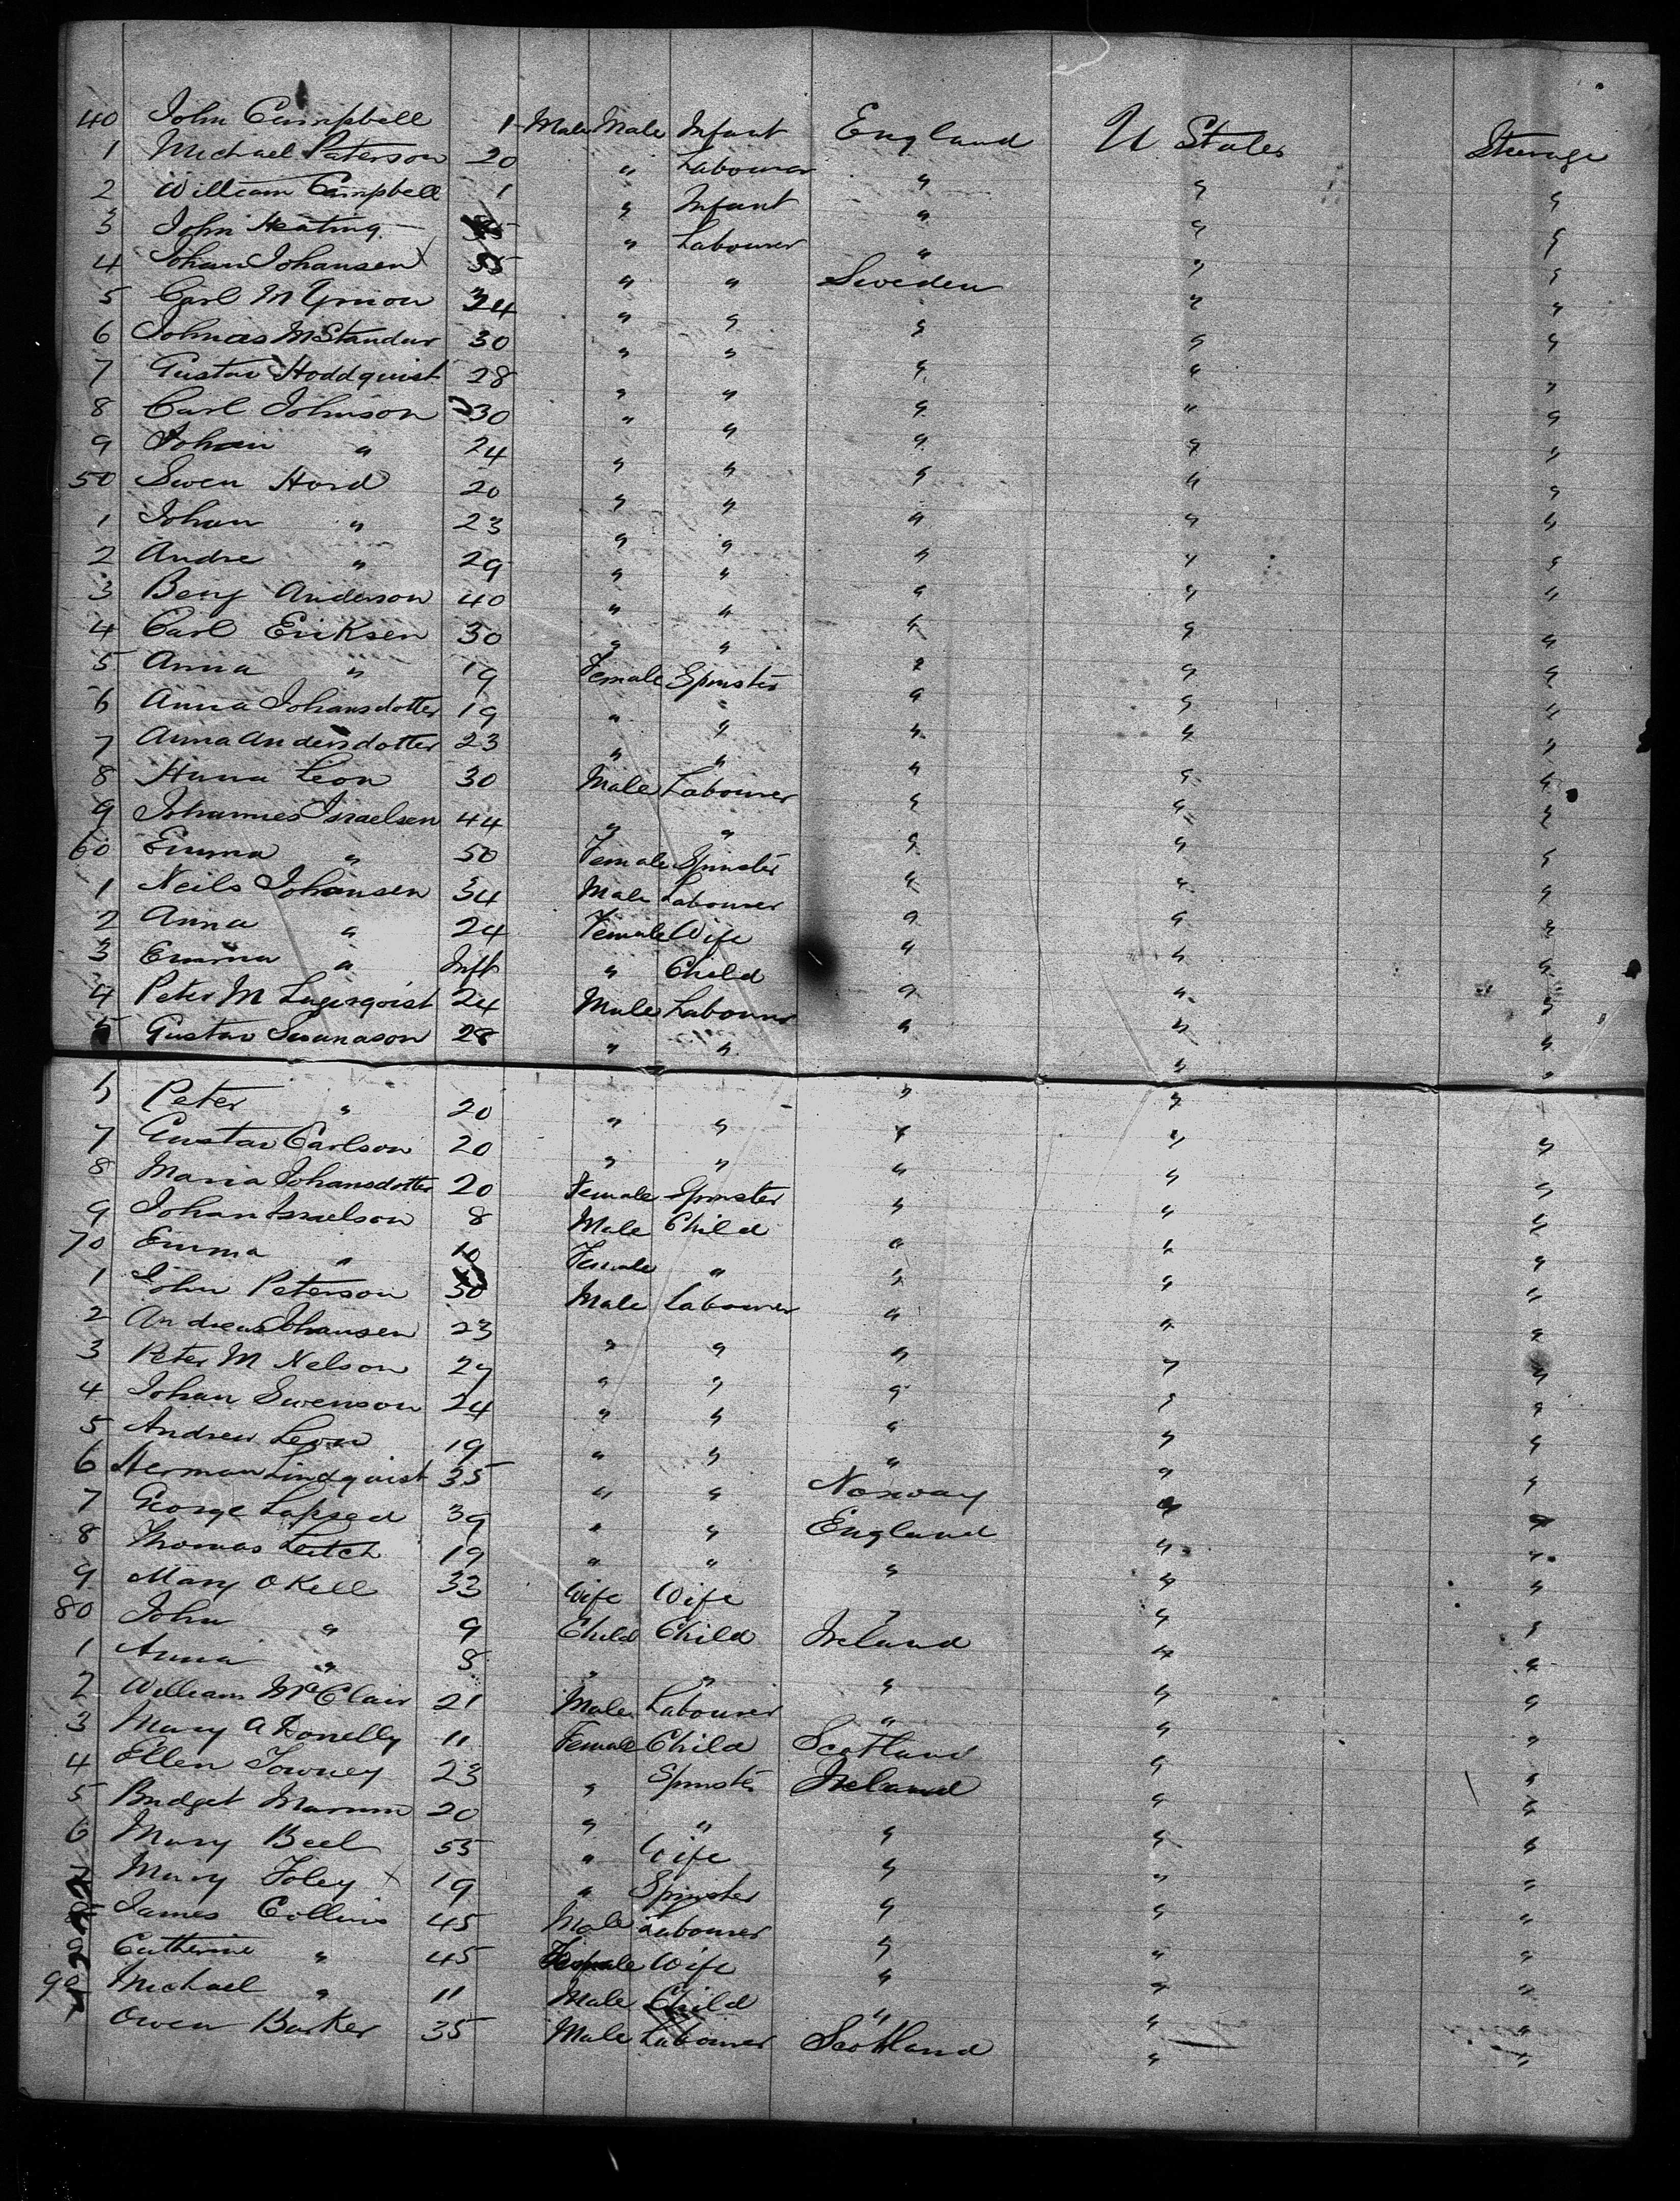 40 John Campbell 1 Male Male Infant England U States Steerage
1 Michael Paterson 20 " Labourer " " "
2 William Campbell 1 " Infant " " "
3 John Keating 35 " Labourer " " "
4 Johan Johansen X 35 " " Sweden " "
5 Carl M 34 " " " " "
6 Johnas M Standur 30 " " " " "
7 Gustav Hoddquist 28 " " " " "
8 Carl Johnson 30 " " " " "
9 Johan " 24 " " " " "
50 Swen Hord 20 " " " " "
1 Johan " 23 " " " " "
2 Andre " 29 " " " " "
3 Benj Anderson 40 " " " " "
4 Carl Eriksen 30 " " " " "
5 Anna " 19 Female Spinster " " "
6 Anna Johansdotter 19 " " " " "
7 Anna Andersdotter 23 " " " " "
8 Leon 30 Male Labourer " " "
9 Johannes Israelsen 44 " " " " "
60 Emma " 50 Female Spinster " " "
1 Neils Johansen 34 Male Labourer " " "
2 Anna " 24 Female Wife " " "
3 Emma " Inft " Child " " "
4 Peter M Lagerqvist 24 Male Labourer " " "
5 Gustav Swanason 28 " " " " "
6 Peter " 20 " " " " "
7 Gustav Carlson 20 " " " " "
8 Maria Johansdotter 20 Female Spinster " " "
9 Johan Israelson 8 Male Child " " "
70 Emma " 10 Female " " " "
1 John Peterson 30 Male Labourer " " "
2 Andreas Johansen 23 " " " " "
3 Peter M Nelson 27 " " " " "
4 Johan Swenson 24 " " " " "
5 Andrew Leon 19 " " " " "
6 Herman Lindquist 35 " " Norway " "
7 George Lapsed 39 " " England " "
8 Thomas Leitch 19 " " " " "
9 Mary O Kell 33 Wife Wife " " "
80 John " 9 Child Child Ireland " "
1 Anna " 8 " " " " "
2 William McClair 21 Male Labourer " " "
3 Mary A Donelly 11 Female Child Scotland " "
4 Ellen Towney 23 " Spinster Ireland " "
5 Bridget 20 " " " " "
6 Mary Beel 55 " Wife " " "
7 Mary Foley X 19 " Spinster " " "
8 James Collins 45 Male Labourer " " "
Catherine " 45 Female Wife " " "
90 Michael " 11 Male Child " " "
Owen Barker 35 Male Labourer Scotland " "